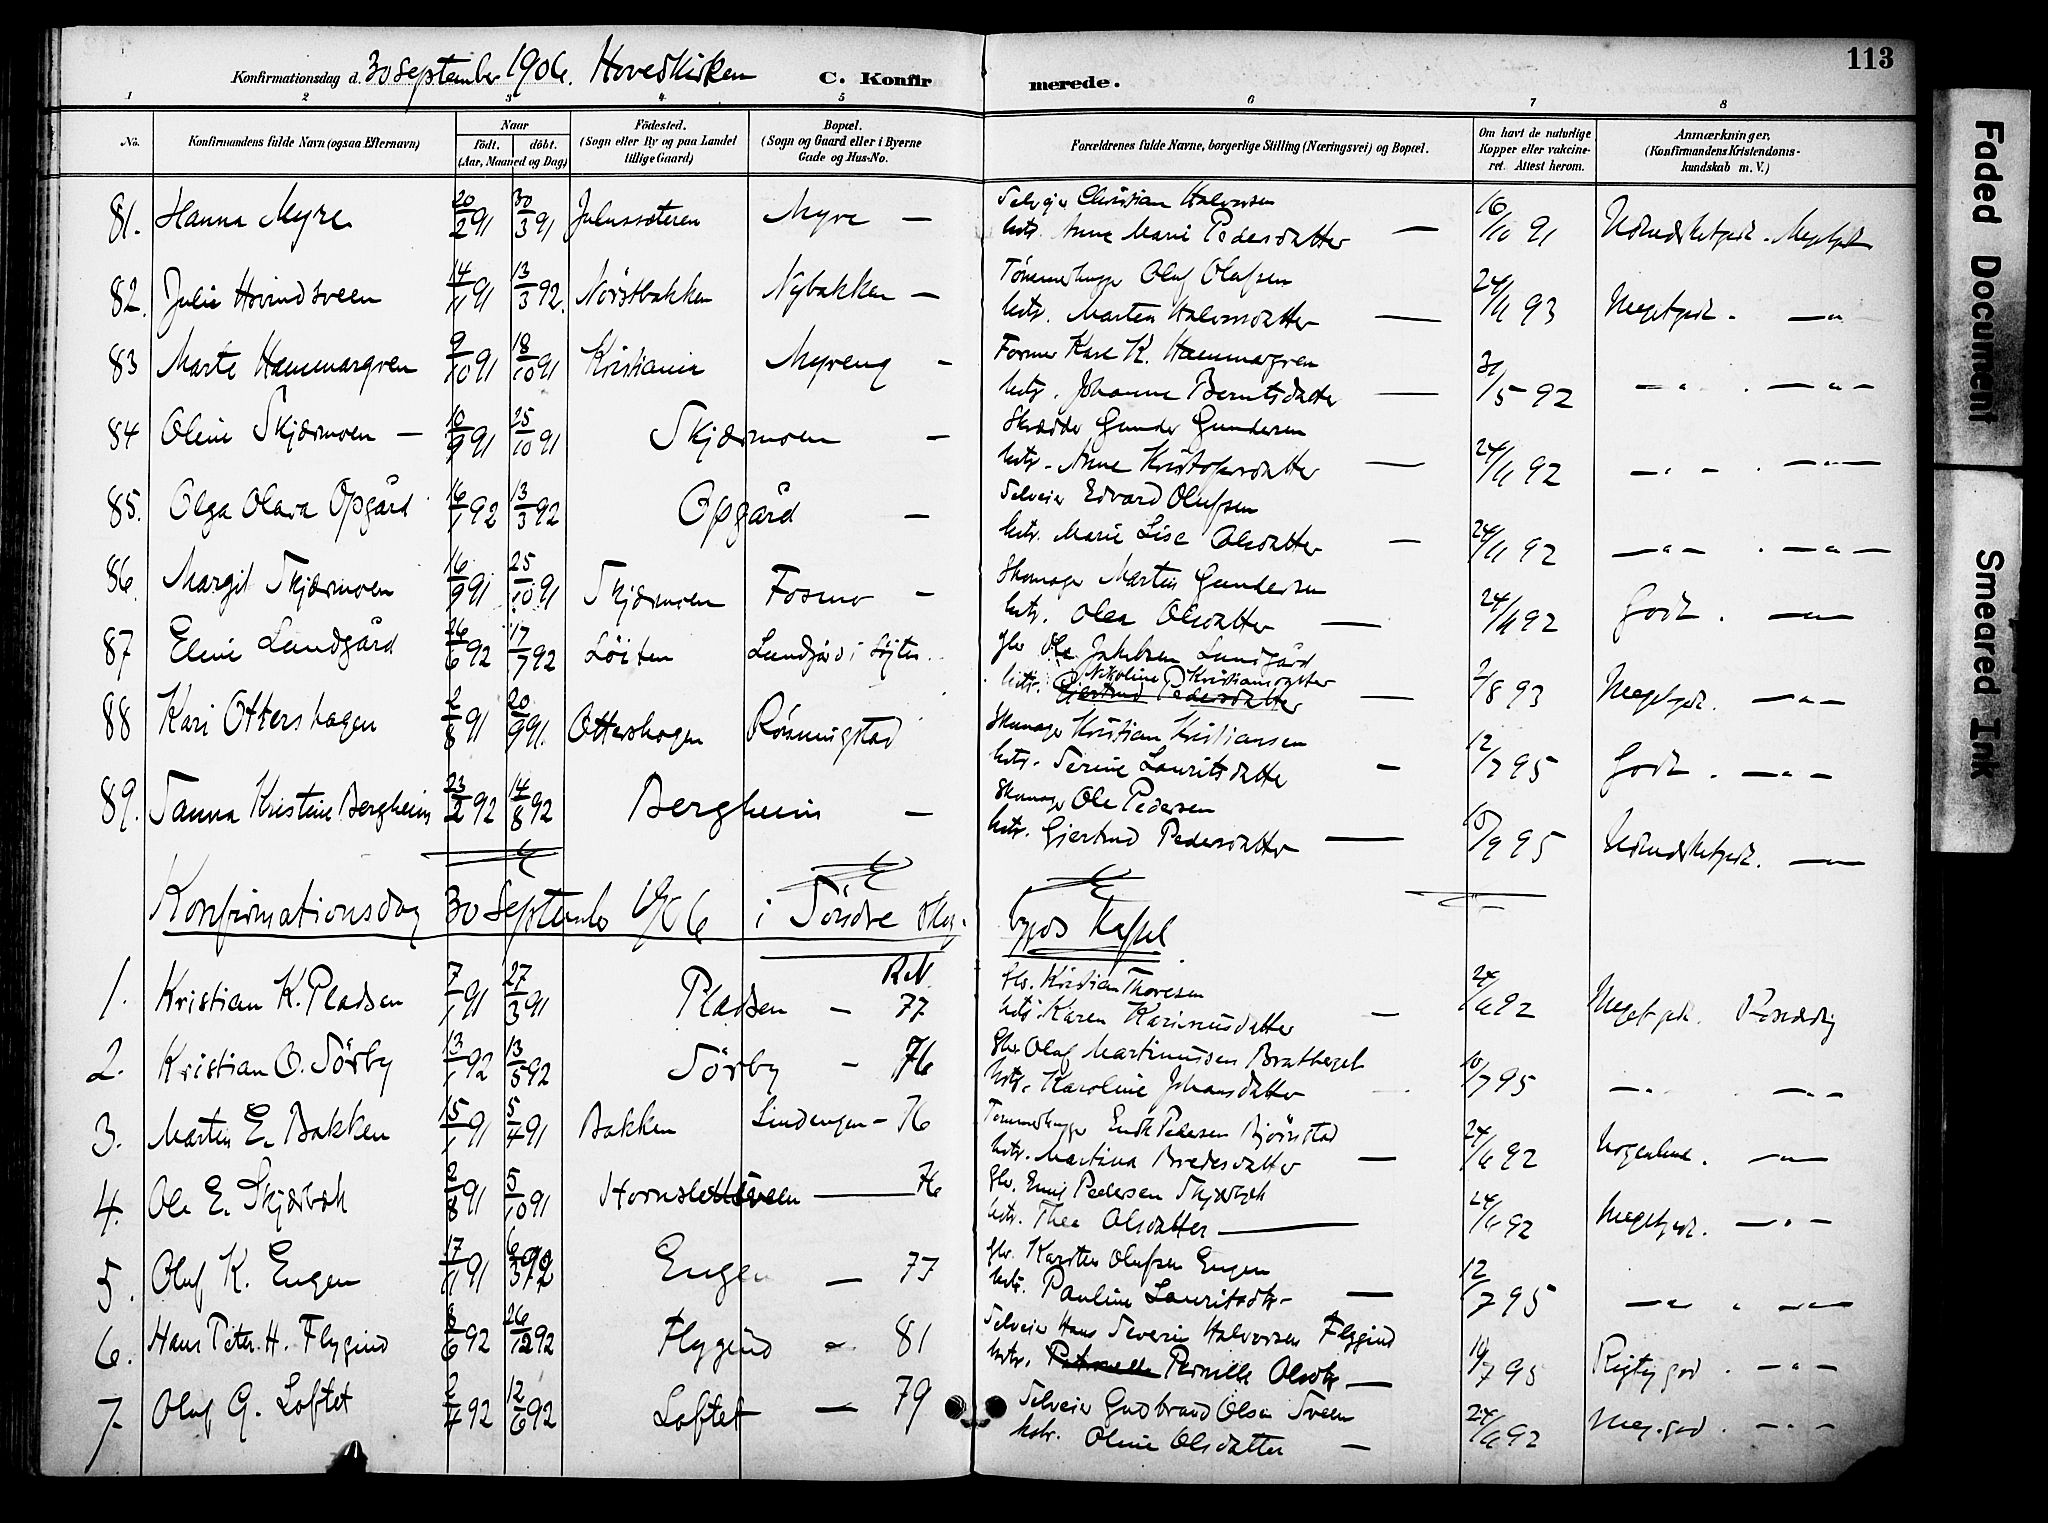 113
Konfirmationsdag d. 30 September 1906. Hovedkirken C. Konfirmerede.
1 2 3 4 5 6 7 8
No. Konfirmandens fulde Navn (ogsaa Efternavn) Naar født. døbt. (Aar, Maaned og Dag) Fødested. (Sogn eller By og paa Landet tillige Gaard) Bopæl. (Sogn og Gaard eller i Byerne Gade og Hus-No. Forældrenes fulde Navne, borgerlige Stilling (Næringsvei) og Bopæl. Om havt de naturlige Kopper eller vakcineret. Attest herom. Anmærkninger, (Konfirmandens Kristendomskundskab m. V.)
81. Hanna Myre 20/2 91 30/3 91 Julussæteren Myre — Selveier Christian Halvorsen
hstr. Anne Marie Pedersdatter — 16/10 91 Udmærketgodt. Megetgodt
82. Julie Hovindsveen 14/11 91 13/3 92. Nordstbakken Nybakken — Tømmerhugger Oluf Olufsen
hstr. Marten Halvorsdatter — 24/6 93 Megetgodt. —"—
83 Marte Hammargren 9/10 91 18/10 91 Kristiania Myreng — Former Karl K. Hammargren
hstr. Johanne Berntsdatter — 31/5 92 —"— . —"—
84 Oline Skjærmoen — 10/9 91 25/10 91 Skjærmoen — Skrædder Gunder Gundersen
hstr. Anne Kristofersdatter — 24/6 92 —"— . —"—
85. Olga Olava Opgård 16/1 92 13/3 92 Opgård — Selveier Edvard Olufsen
hstr. Marie Lise Olsdatter — 24/6 92 —"— . —"—
86. Margit Skjærmoen 16/9 91 25/10 91 Skjærmoen Fosmo — Skomager Martin Gundersen
hstr. Olea Olsdatter — 24/6 92 Godt. —"—
87 Eline Lundgård 26/6 92 17/7 92 Løiten Lundgård i Løiten. gbr Ole Jakobsen Lundgård
hstr. Nikoline Kristiansdatter Gjertrud Pedersdatter — 2/8 93 Megetgodt. —"—
88 Kari Ottershagen 2/8 91 20/9 91. Ottershagen Rønningstad Skomager Kristian Kristiansen
hstr. Serine Lauritsdatter — 12/7 95 Godt. —"—
89. Sanna Kristine Bergheim 23/2 92 14/8 92 Bergheim — Skomager Ole Pedersen
hstr. Gjertrud Pedersdatter — 10/9 95 Udmærketgodt. —"—
Konfirmationsdag 30 September 1906 i Søndre Skogbygds Kapel
1. Kristian K. Pladsen 7/1 91 27/3 91 Pladsen — R.N. 77 Gbr. Kristian Thoresen
hstr Karen Karinusdatter — 24/6 92 Megetgodt. Prisværdig
2. Kristian O. Sörby 13/1 92 13/5 92 Sörby — 76 Gbr Olaf Martinussen Bratberget
hstr. Karoline Johansdatter 10/7 95 —"— —"—
3. Martin E. Bakken 15/1 91 5/4 91 Bakken Lindengen — 76 Tømmerhugger Erik Pedersen Bjørnstad
hstr. Martina Bredesdatter — 24/6 92 Nogenlunde. —"—
4. Ole E. Skjærbæk 2/8 91 5/10 91 Hornslettsveen — 76 Gbr. Emil Pedersen Skjærbæk
hstr. Thea Olsdatter — 24/6 92 Megetgodt. —"—
5. Oluf K. Engen 17/11 91 6/3 92 Engen — 77 Gbr. Karsten Olufsen Engen
hstr. Pauline Lauritsdtr — 12/7 95 —"— " —"—
6. Hans Peter H. Flygind 8/6 92 26/12 92 Flygind — 81 Selveier Hans Severin Halvorsen Flygind
hstr. Petronelle Pernille Olsdtr — 10/7 95 Rigtig god. —"—
7. Oluf G. Loftet 2/4 92 12/6 92 Loftet — 79 Selveier Gudbrand Olsen Sveen
hstr. Oline Olsdatter — 24/6 92 Meg.god. —"—
Faded Document
Smeared Ink